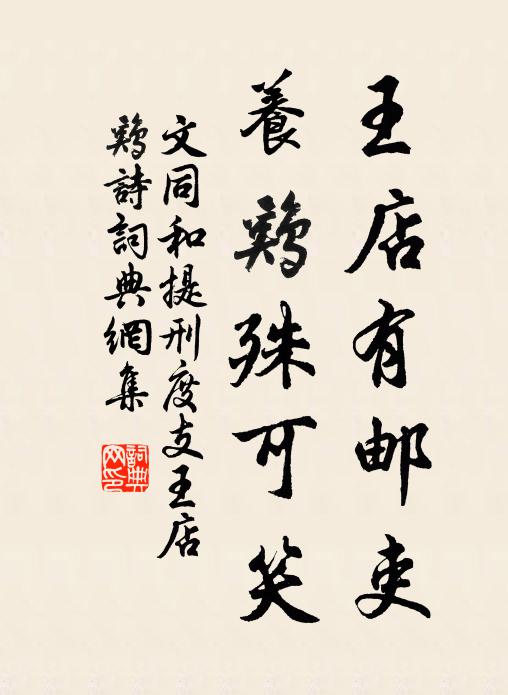 王店有邮吏
養鷄殊可笑
文同和提刑度支王店
鷄詩詞典網集
詞典
网印